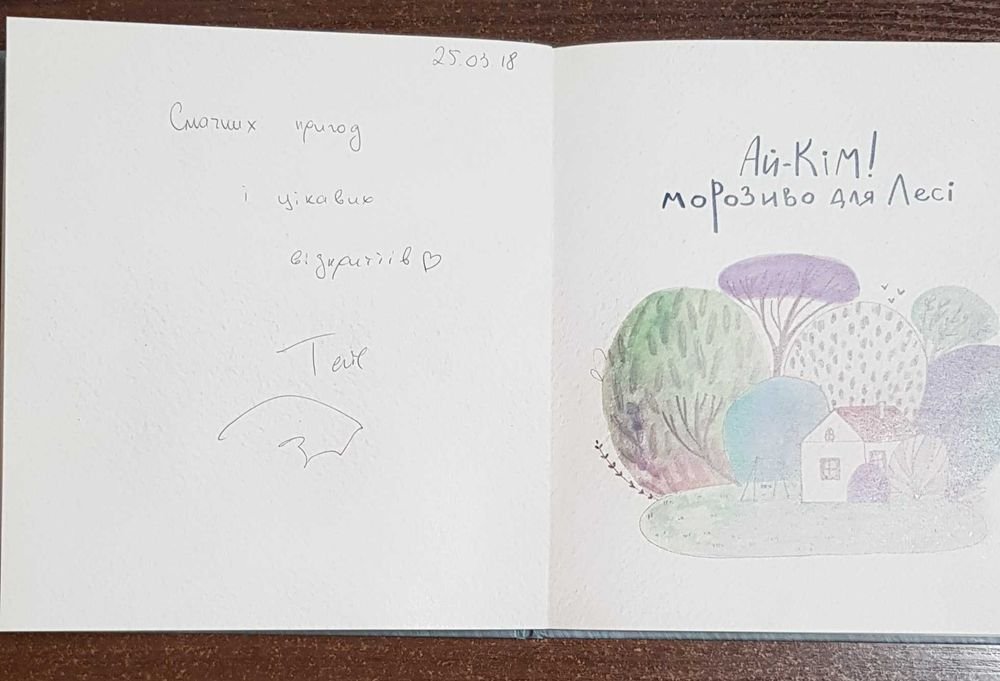 25.03.18
Смачних пригод
і цікавих
відкриттів♡
Ай-Кім!
морозиво для Лесі